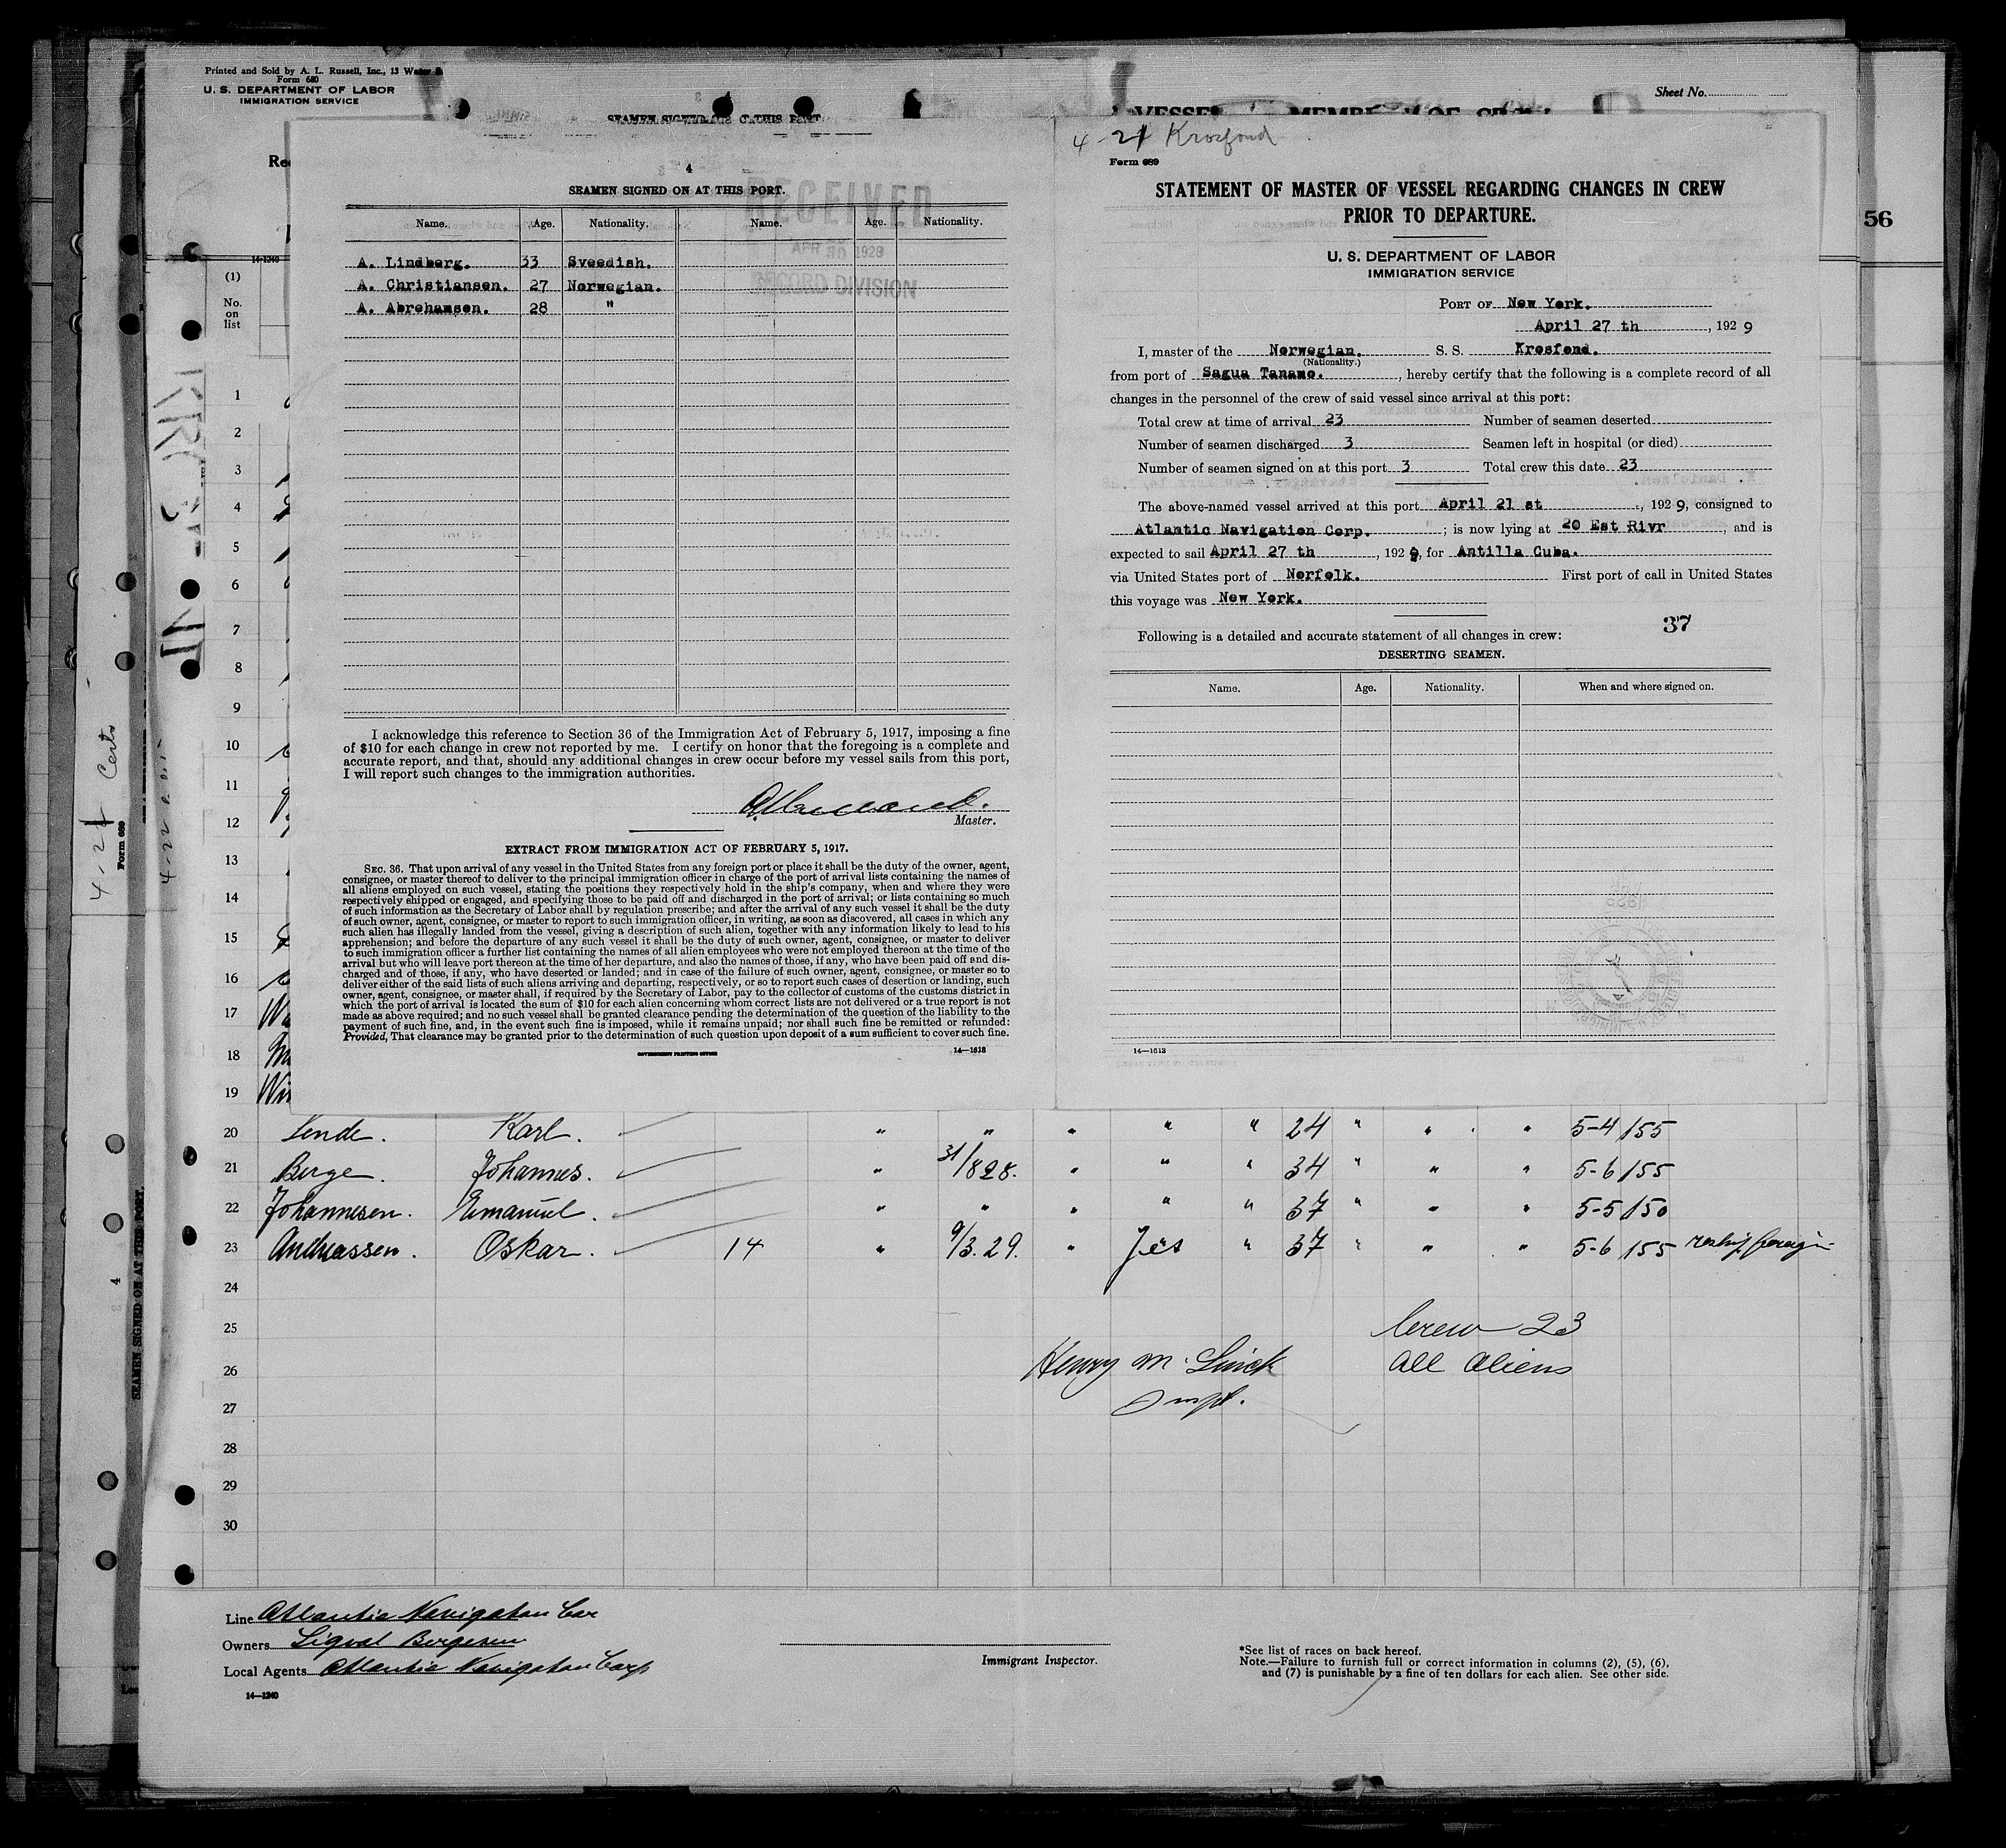 Printed and Sold by A. L. Russell, Inc., 13 Water
Form 680
U. S. DEPARTMENT OF LABOR
IMMIGRATION SERVICE
Sheet No.
56
4
SEAMEN SIGNED ON AT THIS PORT.
Name. Age. Nationality. Name. Age. Nationality.
A. Lindberg. 33 Sveedish.
A. Christiansen. 27 Norwegian.
A. Abrehamsen. 28 "
RECEIVED
APR 30 1929
RECORD DIVISION
I acknowledge this reference to Section 36 of the Immigration Act of February 5, 1917, imposing a fine
of $10 for each change in crew not reported by me. I certify on honor that the foregoing is a complete and
accurate report, and that, should any additional changes in crew occur before my vessel sails from this port,
I will report such changes to the immigration authorities.
Master.
EXTRACT FROM IMMIGRATION ACT OF FEBRUARY 5, 1917.
SEC. 36. That upon arrival of any vessel in the United States from any foreign port or place it shall be the duty of the owner, agent,
consignee, or master thereof to deliver to the principal immigration officer in charge of the port of arrival lists containing the names of
all aliens employed on such vessel, stating the positions they respectively hold in the ship's company, when and where they were
respectively shipped or engaged, and specifying those to be paid off and discharged in the port of arrival; or lists containing so much
of such information as the Secretary of Labor shall by regulation prescribe; and after the arrival of any such vessel it shall be the duty
of such owner, agent, consignee, or master to report to such immigration officer, in writing, as soon as discovered, all cases in which any
such alien has illegally landed from the vessel, giving a description of such alien, together with any information likely to lead to his
apprehension; and before the departure of any such vessel it shall be the duty of such owner, agent, consignee, or master to deliver
to such immigration officer a further list containing the names of all alien employees who were not employed thereon at the time of the
arrival but who will leave port thereon at the time of her departure, and also the names of those, if any, who have been paid off and dis-
charged and of those, if any, who have deserted or landed; and in case of the failure of such owner, agent, consignee, or master so to
deliver either of the said lists of such aliens arriving and departing, respectively, or so to report such cases of desertion or landing, such
owner, agent, consignee, or master shall, if required by the Secretary of Labor, pay to the collector of customs of the customs district in
which the port of arrival is located the sum of $10 for each alien concerning whom correct lists are not delivered or a true report is not
made as above required; and no such vessel shall be granted clearance pending the determination of the question of the liability to the
payment of such fine, and, in the event such fine is imposed, while it remains unpaid; nor shall such fine be remitted or refunded:
Provided, That clearance may be granted prior to the determination of such question upon deposit of a sum sufficient to cover such fine.
GOVERNMENT PRINTING OFFICE 14—1613
4-21 Krosfond
Form 689
STATEMENT OF MASTER OF VESSEL REGARDING CHANGES IN CREW
PRIOR TO DEPARTURE.
U. S. DEPARTMENT OF LABOR
IMMIGRATION SERVICE
PORT OF New York.
April 27 th, 1929
I, master of the Norwegian. S. S. Krosfond.
(Nationality.)
from port of Sagua Tanamo., hereby certify that the following is a complete record of all
changes in the personnel of the crew of said vessel since arrival at this port:
Total crew at time of arrival 23 Number of seamen deserted
Number of seamen discharged 3 Seamen left in hospital (or died)
Number of seamen signed on at this port 3 Total crew this date 23
The above-named vessel arrived at this port April 21 st, 1929, consigned to
Atlantic Navigation Corp.; is now lying at 20 Est Rivr, and is
expected to sail April 27 th, 1929, for Antilla Cuba.
via United States port of Norfolk. First port of call in United States
this voyage was New York.
37
Following is a detailed and accurate statement of all changes in crew:
DESERTING SEAMEN.
Name. Age. Nationality. When and where signed on.
14—1613
14-1240
(1)
No.
on
list
1
2
3
4
5
6
7
8
9
10
11
12
13
14
15
16
17
18
19
20 Lende. Karl. " " " " " 24 " " " 5-4 155
21 Berge. Johannes. " 31/8 28. " " " 34 " " " 5-6 155
22 Johannesen. Emanuel. " " " " " 37 " " " 5-5 150
23 Andreassen. Oskar. 14 " 9/3.29. " Yes " 37 " " " 5-6 155
24
25 Crew 23
26 Henry M. Linck All Aliens
27 Inspt.
28
29
30
Line Atlantic Navigation Cor
Owners Sigval Bergesen
Local Agents Atlantic Navigation Corp
14—1240
Immigrant Inspector.
*See list of races on back hereof.
Note.—Failure to furnish full or correct information in columns (2), (5), (6),
and (7) is punishable by a fine of ten dollars for each alien. See other side.
Form 689
4
SEAMEN SIGNED ON AT THIS PORT.